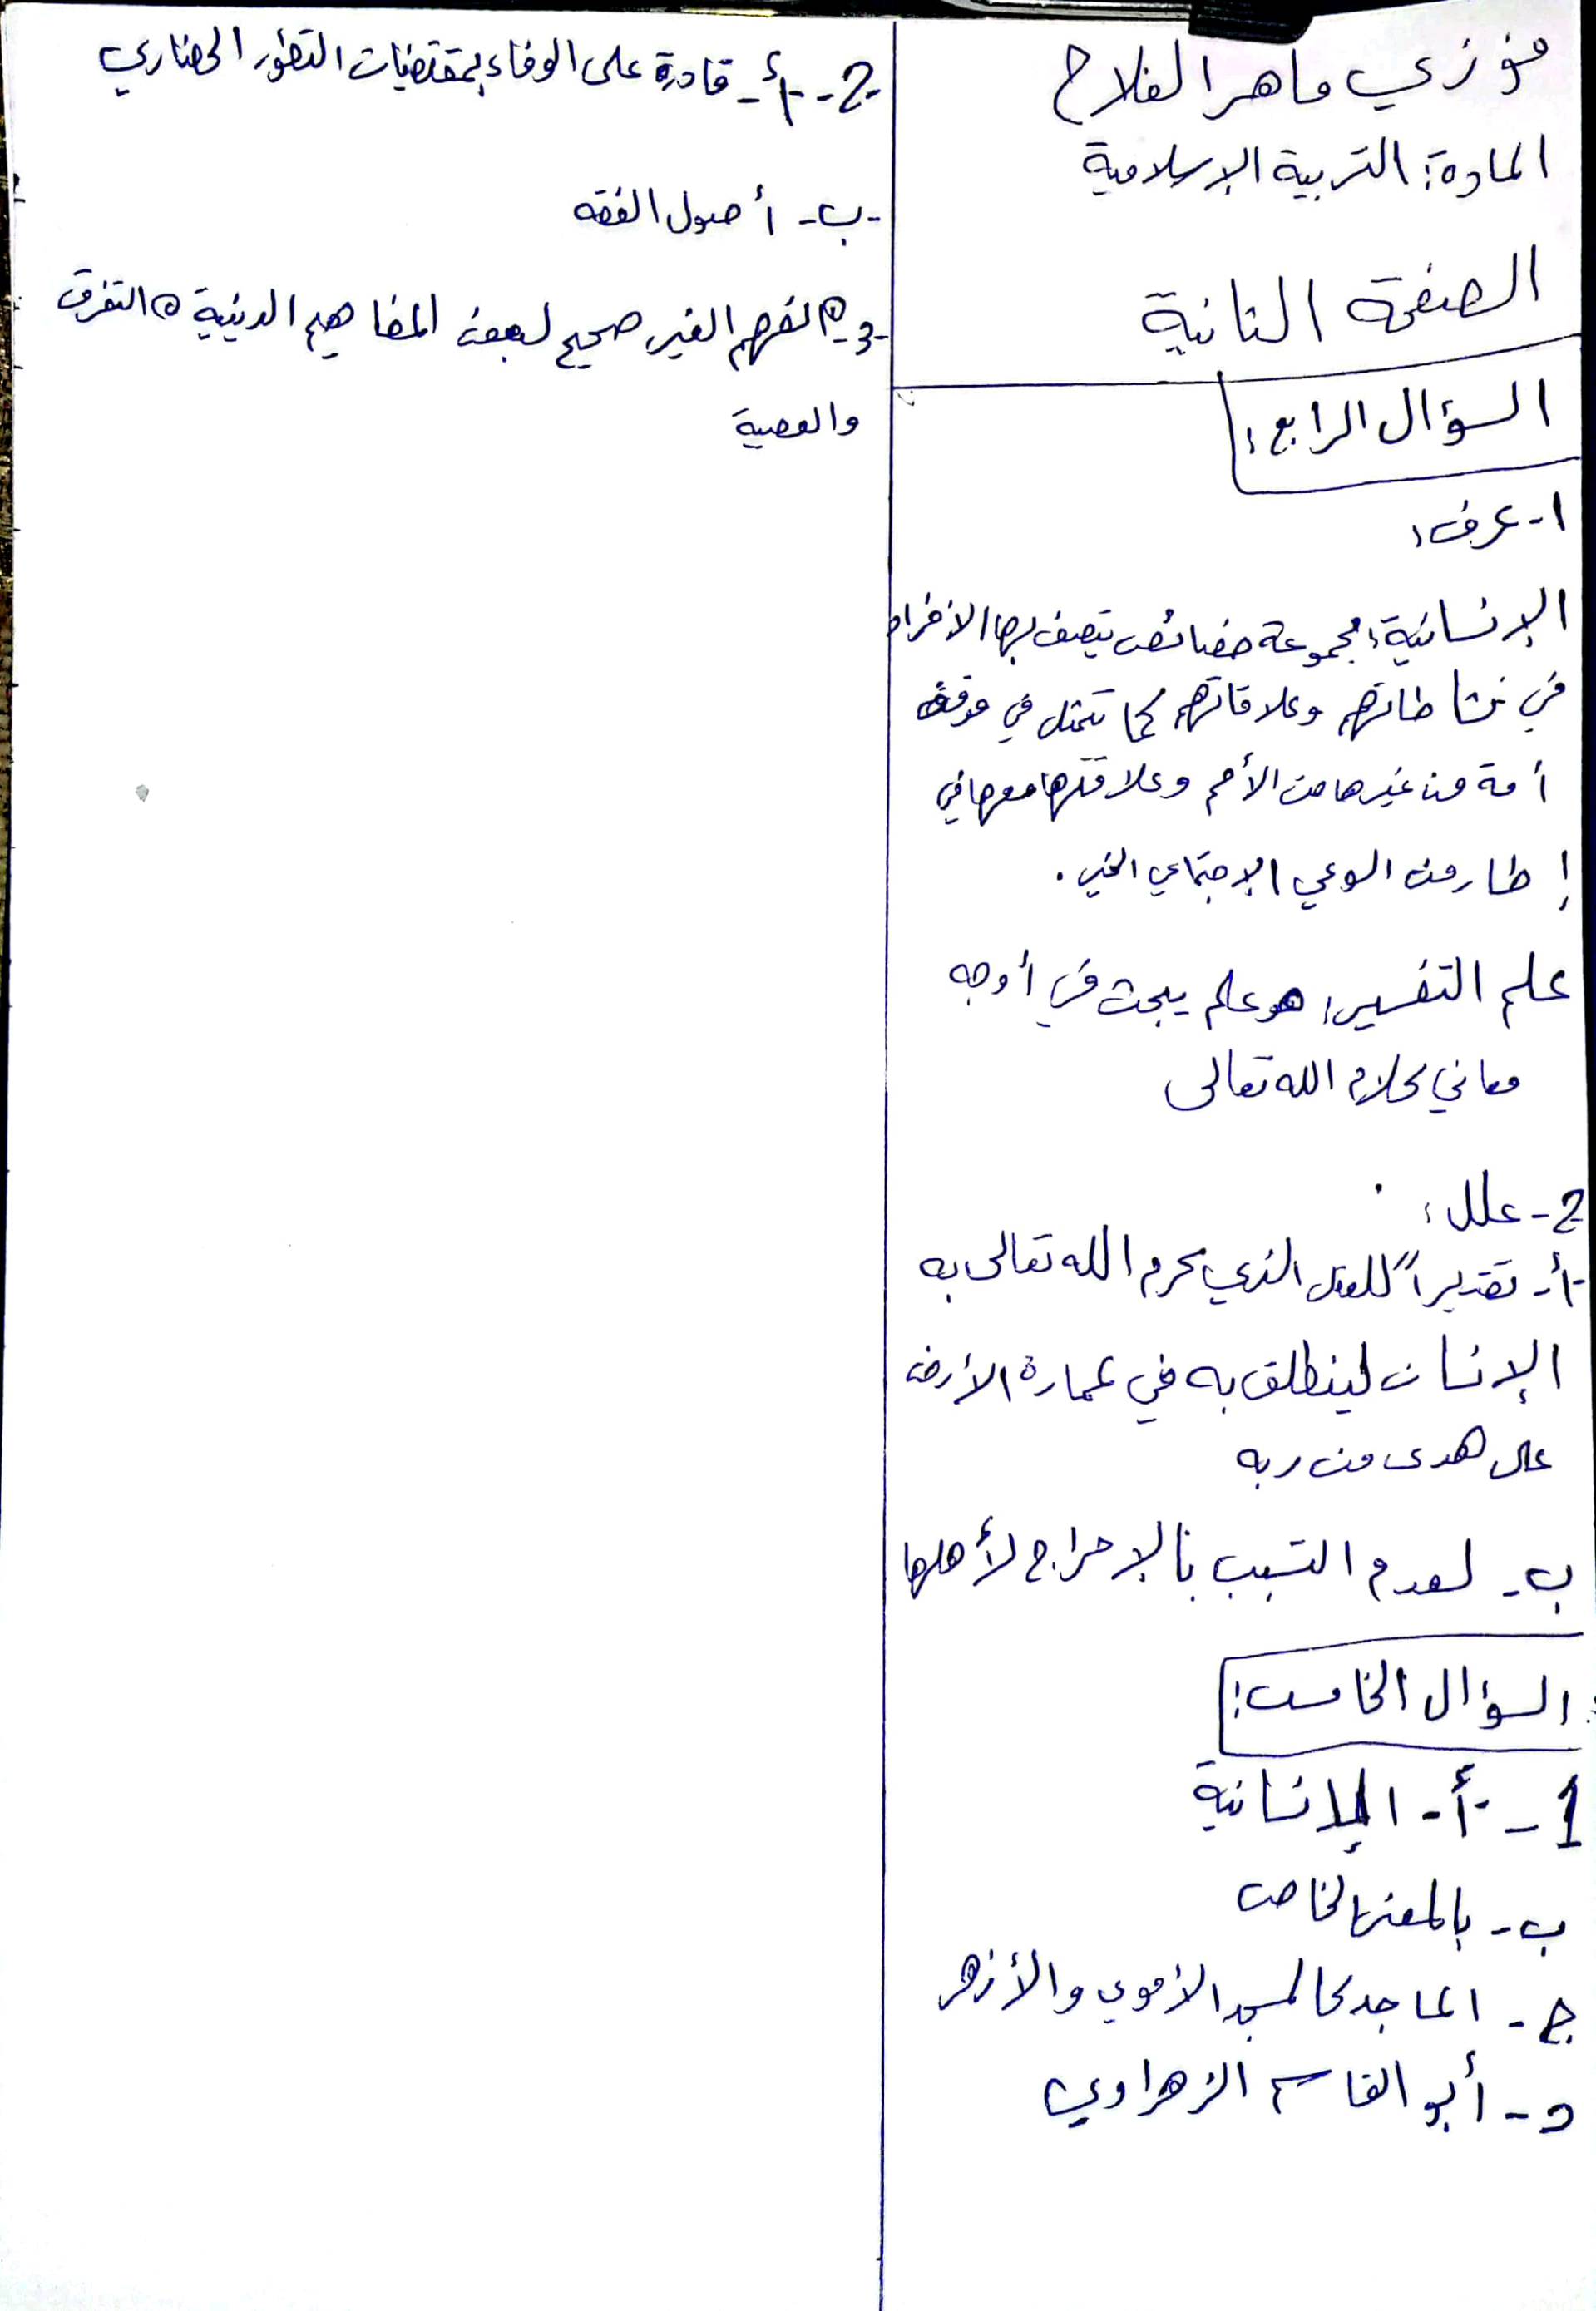 فوزي ماهر الفلاح
المادة: التربية الإسلامية
الصفحة الثانية
السؤال الرابع:
1- عرف:
الإنسانية: مجموعة خصائص يتصف بها الأفراد
في نشاطاتهم وعلاقاتهم كما تتمثل في موقف
أمة من غيرها من الأمم وعلاقتها معها في
إطار من الوعي الإجتماعي الخير.
علم التفسير: هو علم يبحث في أوجه
معاني كلام الله تعالى
2- علل:
-أ- تقديراً للعقل الذي كرم الله تعالى به
الإنسان لينطلق به في عمارة الأرض
على هدى من ربه
ب- لعدم التسبب بالإحراج لأهلها
السؤال الخامس:
1- -أ- الإنسانية
ب- بالمعنى الخاص
ج- المساجد كالمسجد الأموي والأزهر
د- أبو القاسم الزهراوي
2- -أ- قادرة على الوفاء بمقتضيات التطور الحضاري
-ب- أصول الفقه
-3- الفهم الغير صحيح لبعض المفاهيم الدينية التفرق
والعصبية